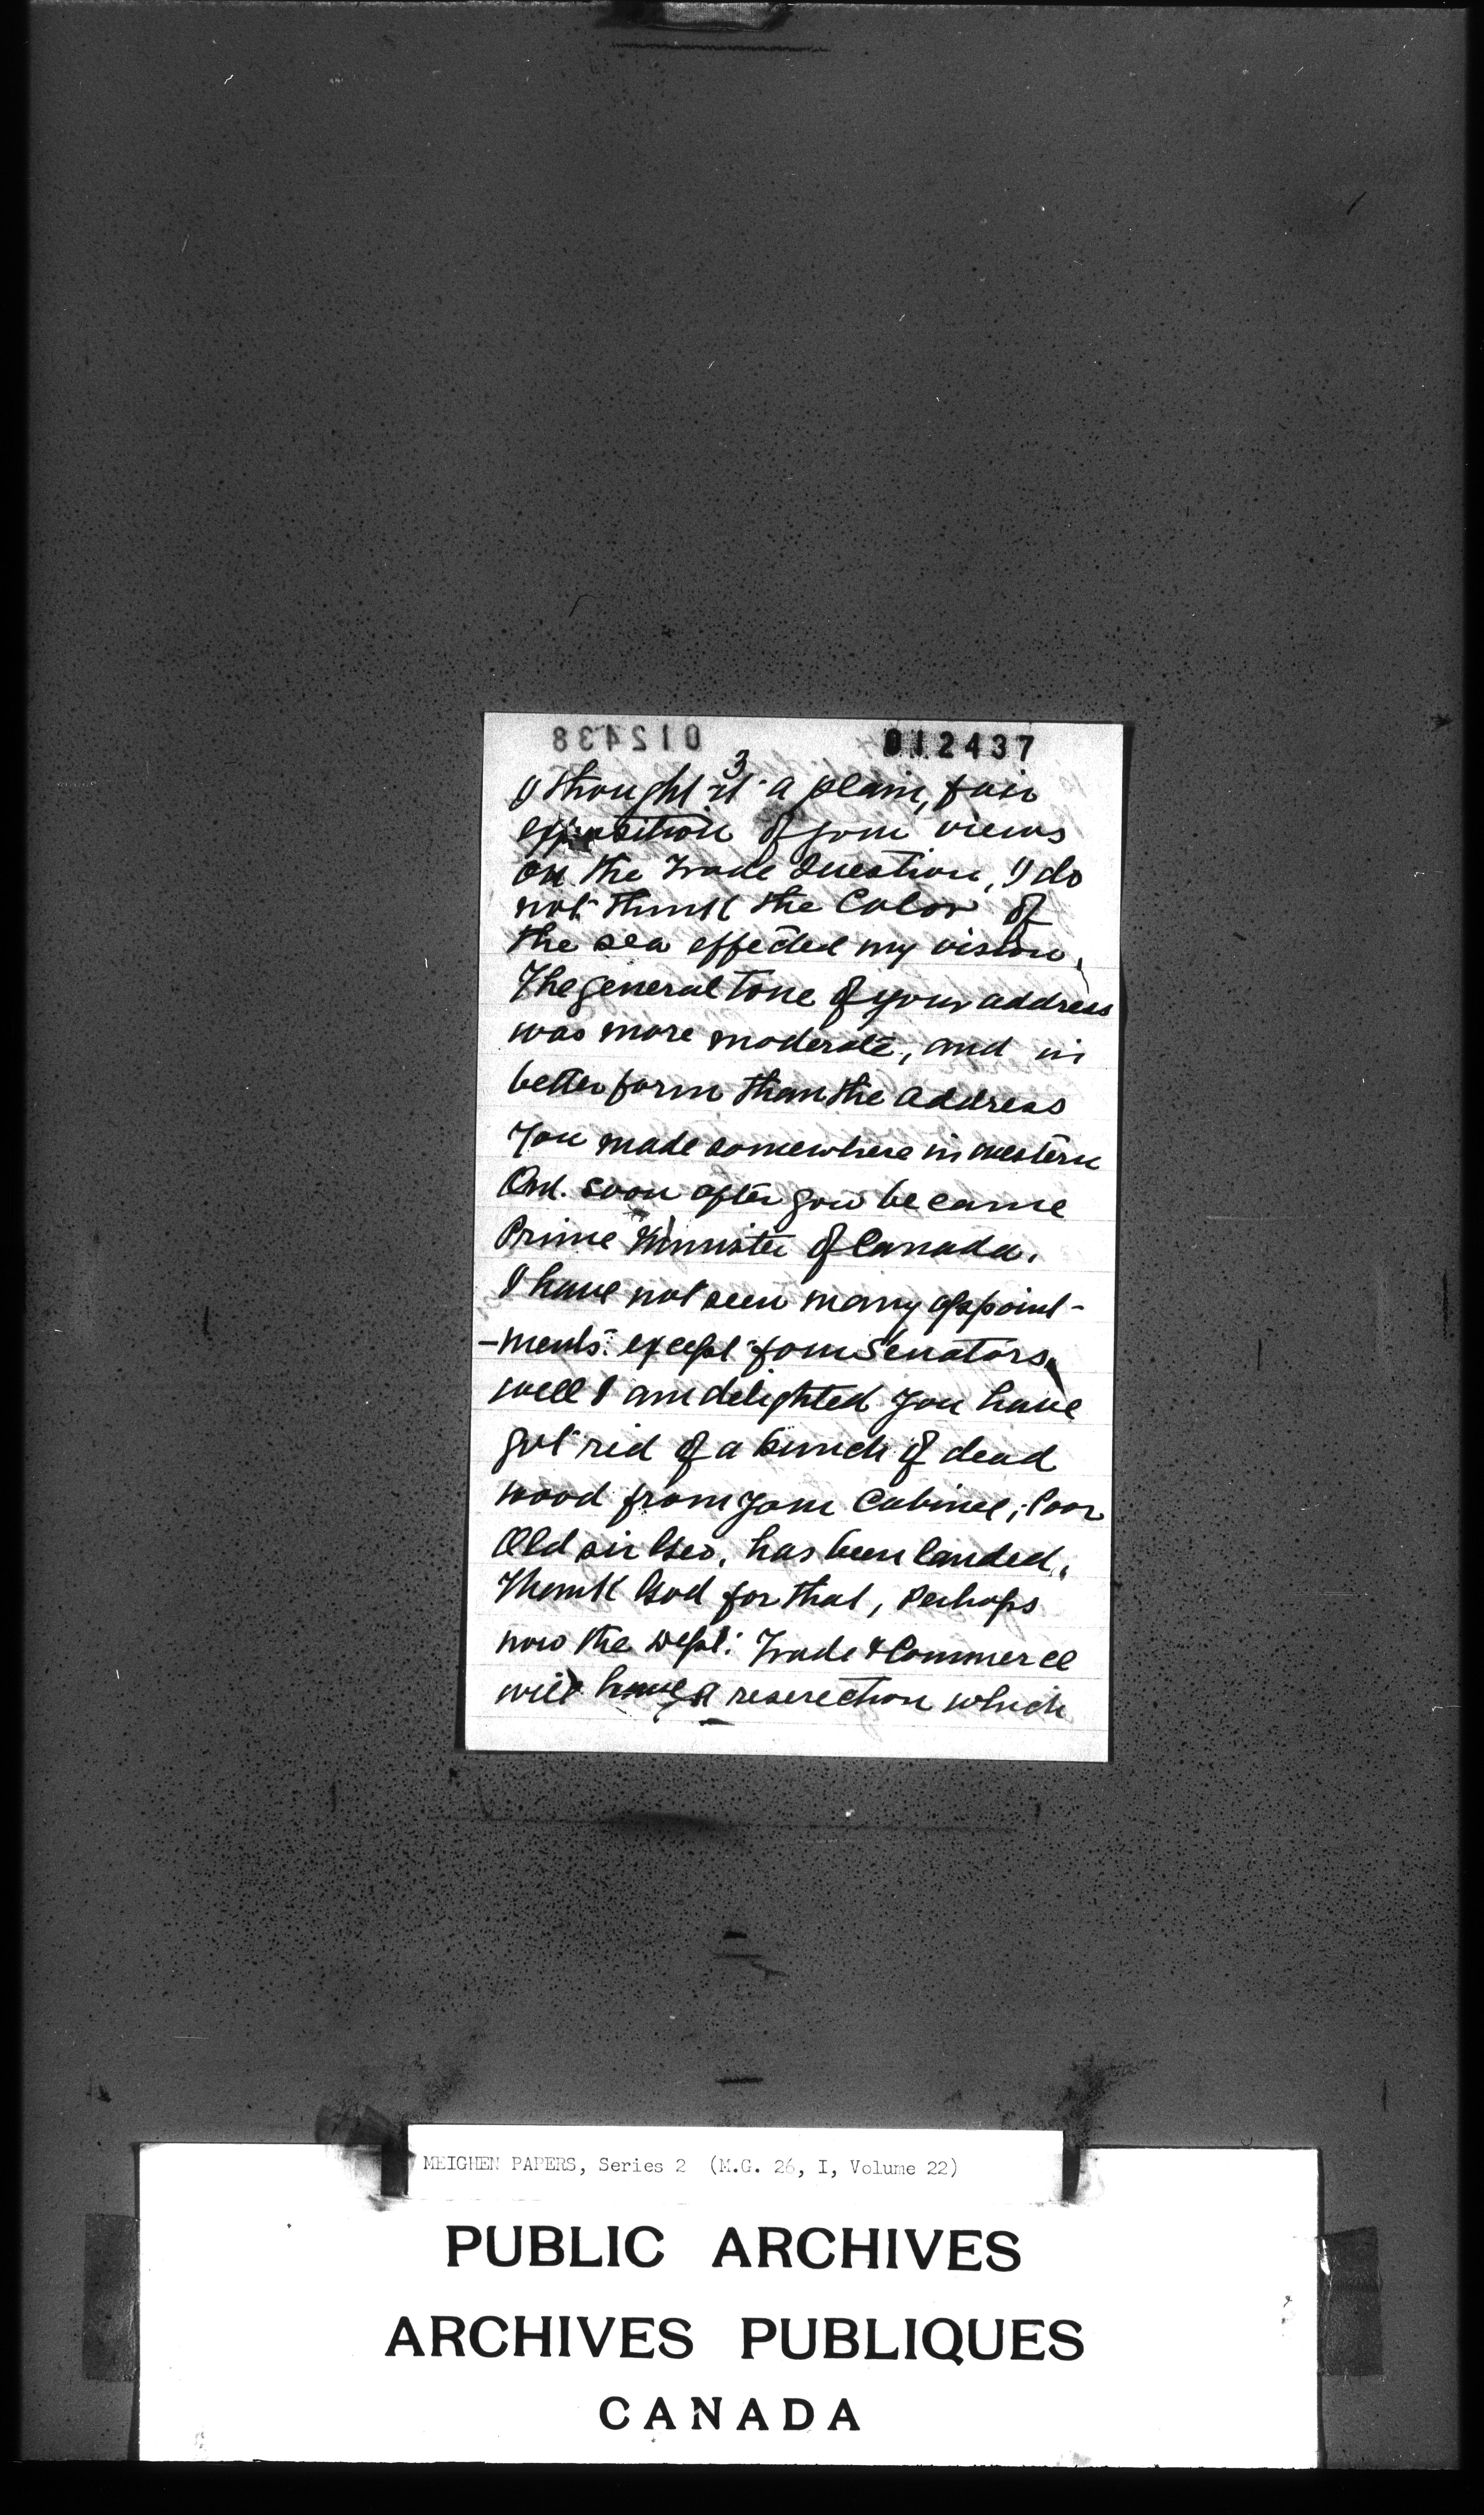 012438 012437
3
I thought it a plain, fair
exposition of your views
on the Trade Question, I do
not think the Color of
the sea effected my vision.
The general tone of your address
was more moderate, and in
better form than the address
You made somewhere in western
Ont. soon after you became
Prime Minister of Canada.
I have not seen many appoint-
-ments. except four Senators.
well I am delighted you have
got rid of a bunch of dead
wood from your Cabinet, Poor
Old sir Geo. has been landed.
Thank God for that, Perhaps
now the Dept: Trade & Commerce
will have a reserection which
MEIGHEN PAPERS, Series 2 (M.G. 26, I, Volume 22)
PUBLIC ARCHIVES
ARCHIVES PUBLIQUES
CANADA